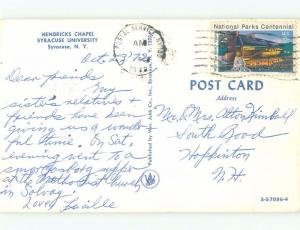 HENDRICKS CHAPEL
SYRACUSE UNIVERSITY
Syracuse, N. Y.
Oct. 22, '72
Dear friends,
My
sister's relatives &
friends have been
giving us a wonder-
ful time. On Sat.
evening went to a
smorgasborg supper
at the Methodist Church
in Solvay.
Love, Lucille
U.S. POSTAL SERVICE
AM
National Parks Centennial
POST CARD
Address
Mr. & Mrs. Alton Kimball
South Road
Hopkinton
N.H.
S-57096-4